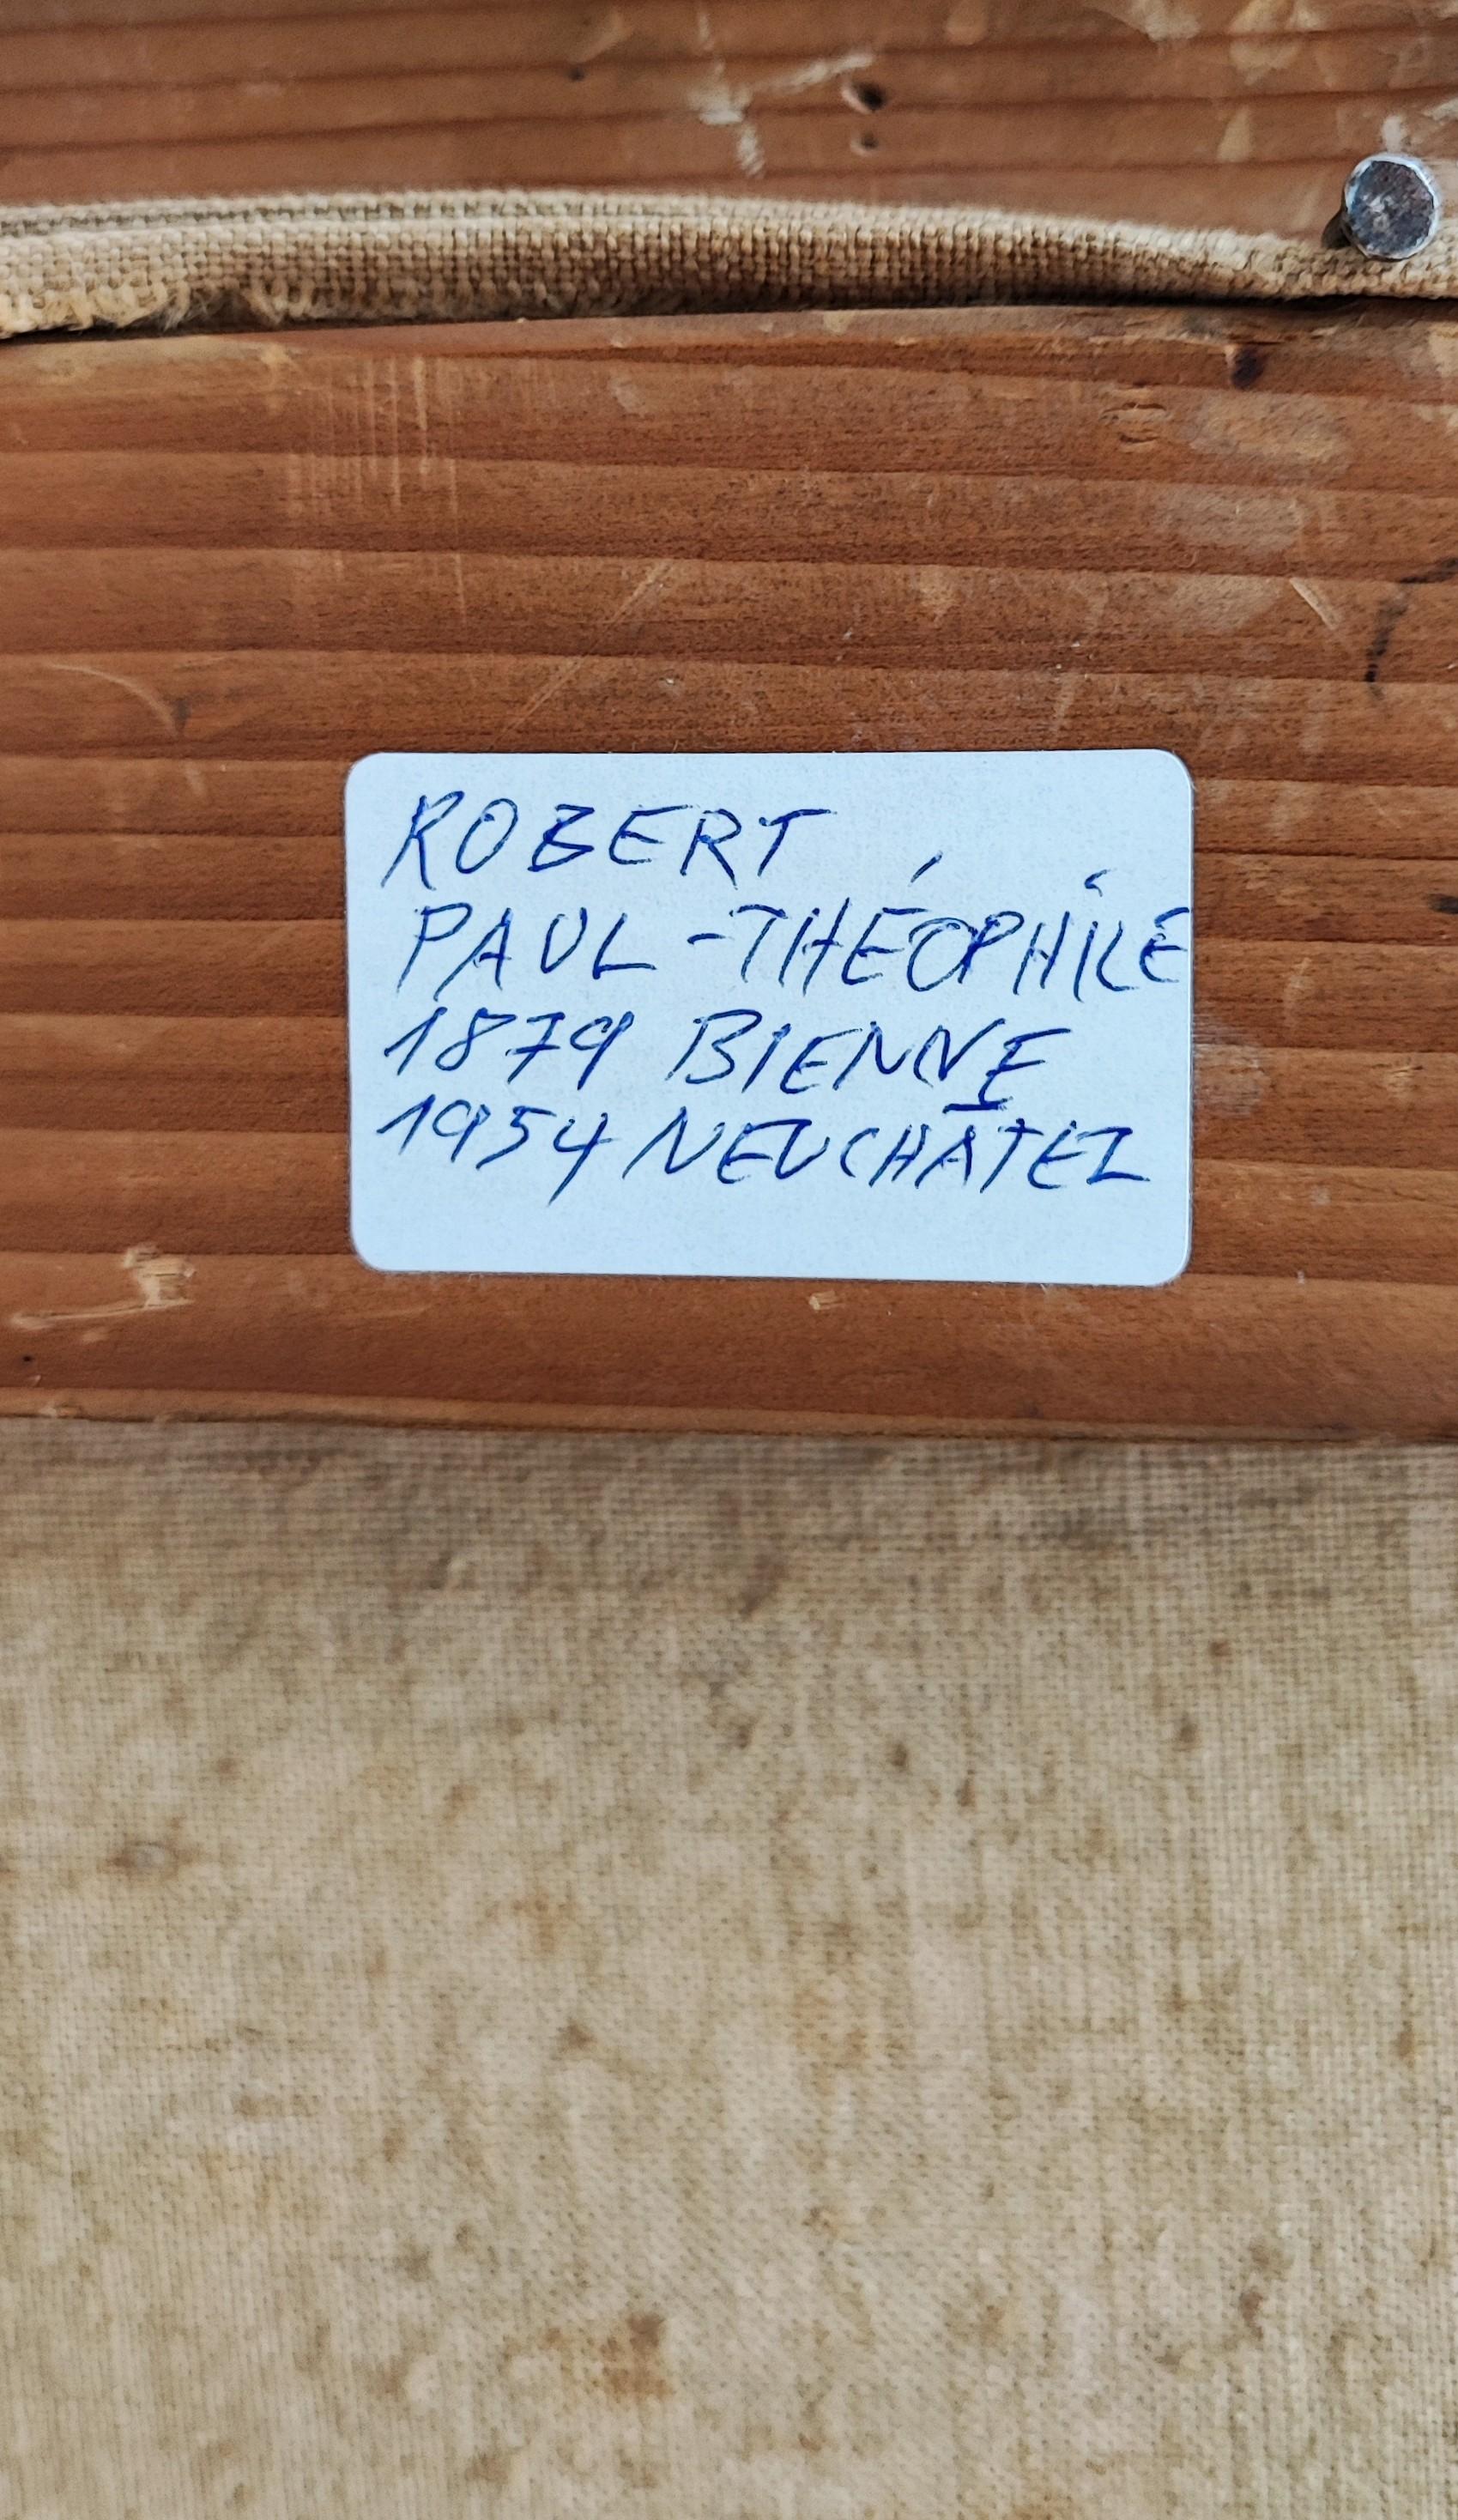 ROBERT
PAUL-THÉOPHILE
1879 BIENNE
1954 NEUCHÂTEL